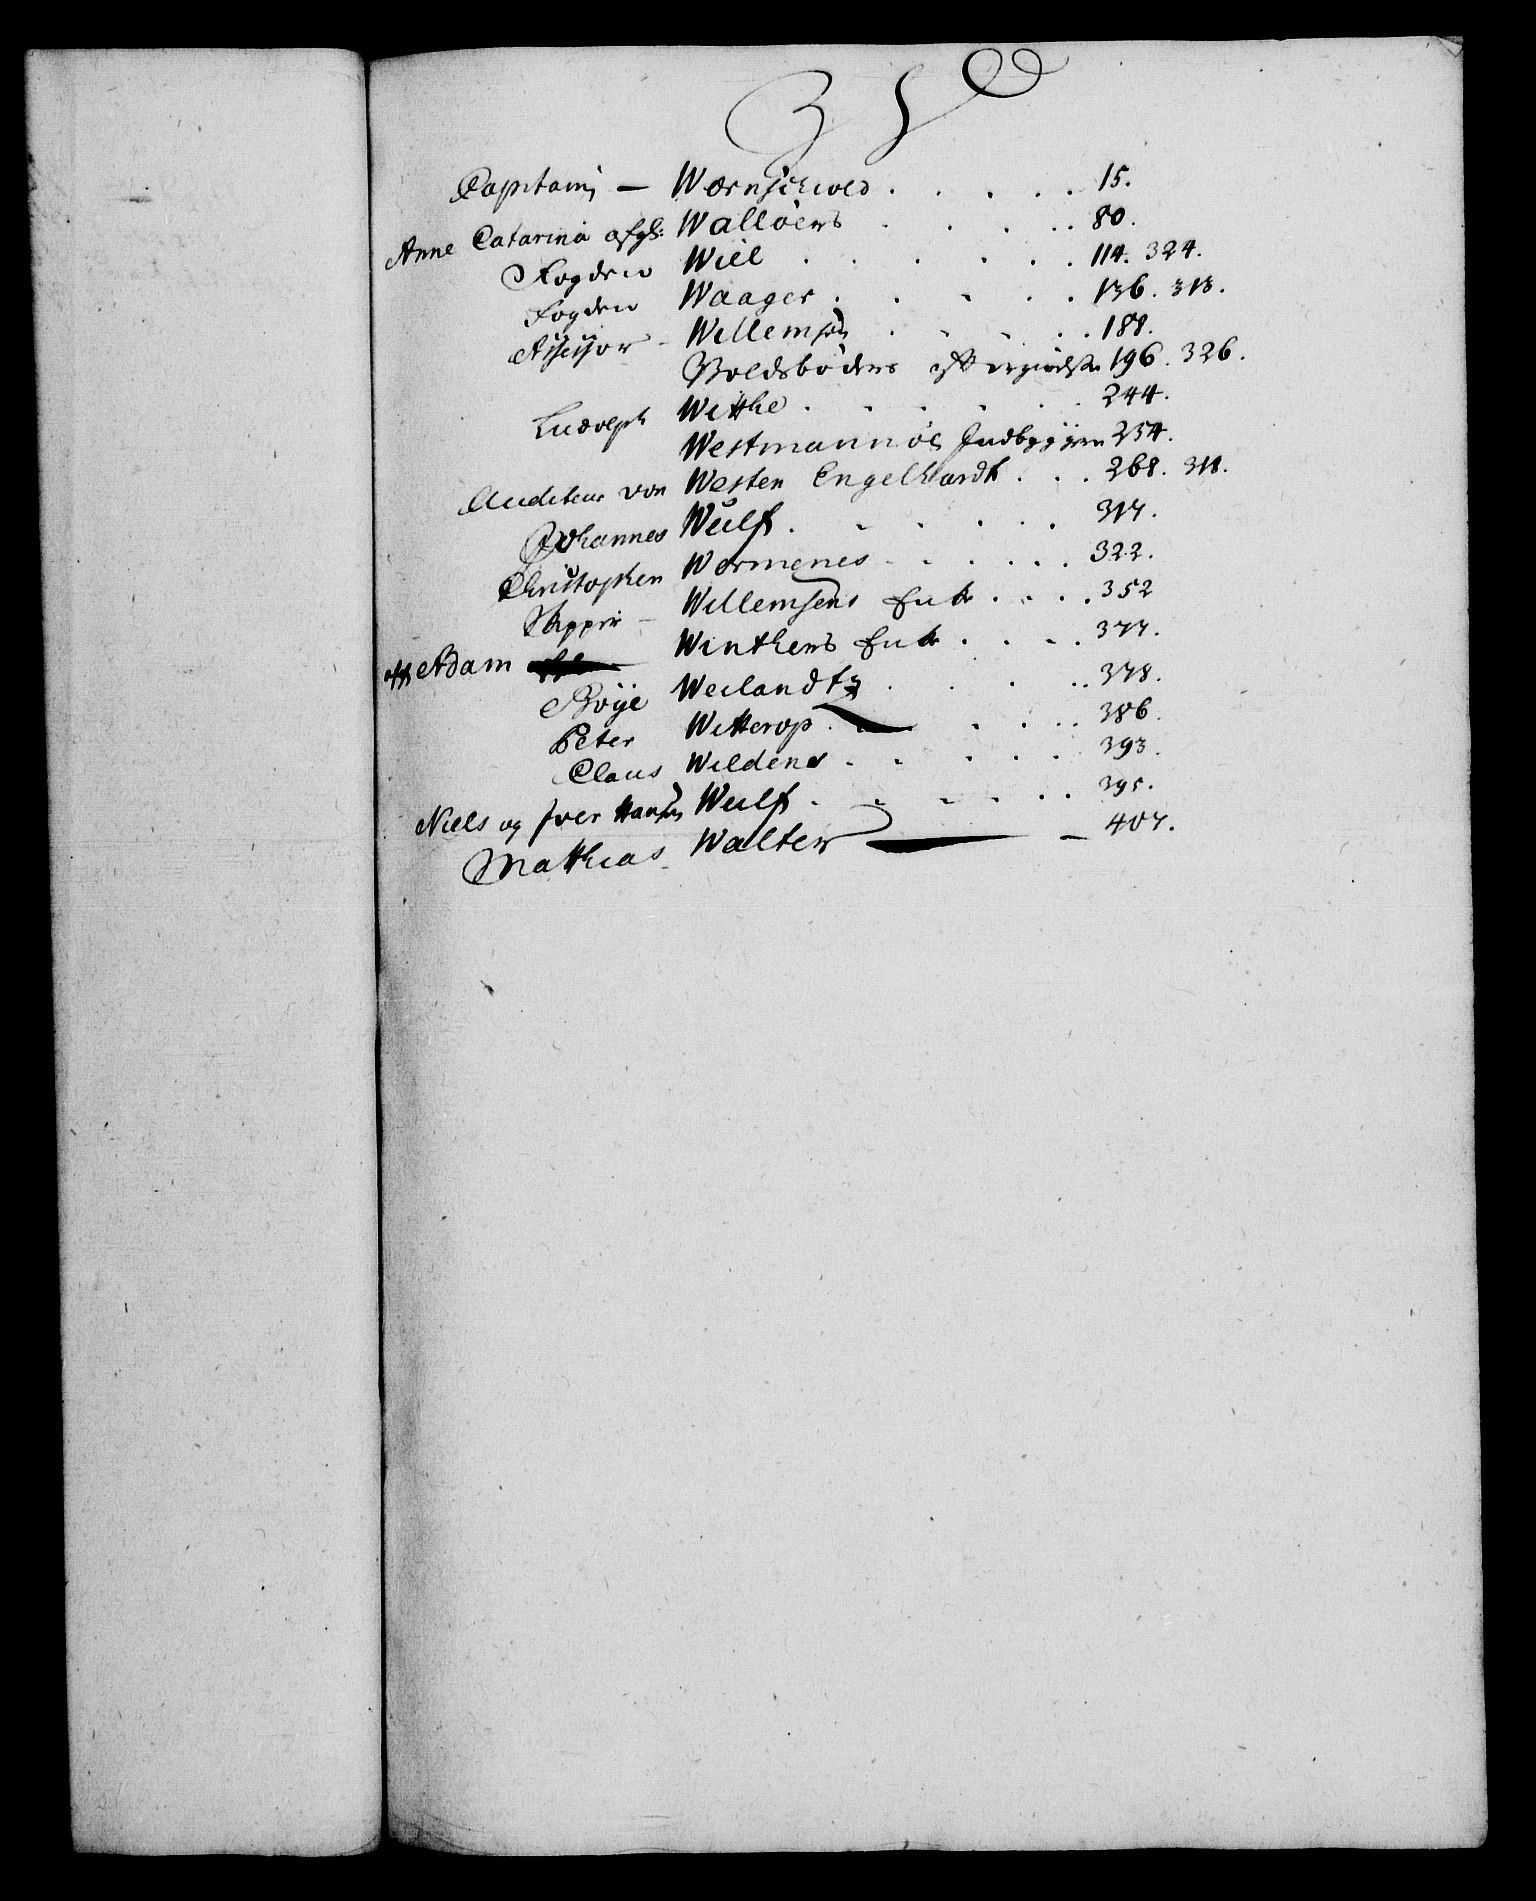 W
Capitain — Wærnschiold . . . . . 15.
Anne Catarina afgl: Walløers . . . . 80.
Fogden Wiel . . . . . . 114. 324.
Fogden Waager . . . . . 136. 313.
Assessor - Willemsen . . . . 188.
Voldsbøders 196. 326.
Ludolph Withe . . . . . 244.
Westmannøe Indbyggere 254.
Auditeur von Westen Engelhardt . . . 268. 318.
Johannes Wulf . . . . . . 317.
Christopher Wormenes . . . . . . 322.
Skipper - Willemsens Enke . . . . 352
Adam Winthers Enke . . . . 377.
Boye Weilandt . . . . . 378.
Peter Witterop . . . . 386.
Claus Wildens . . . . . 393.
Niels og Iver Hansen Wulf . . . . . . 395.
Mathias Walter — 407.